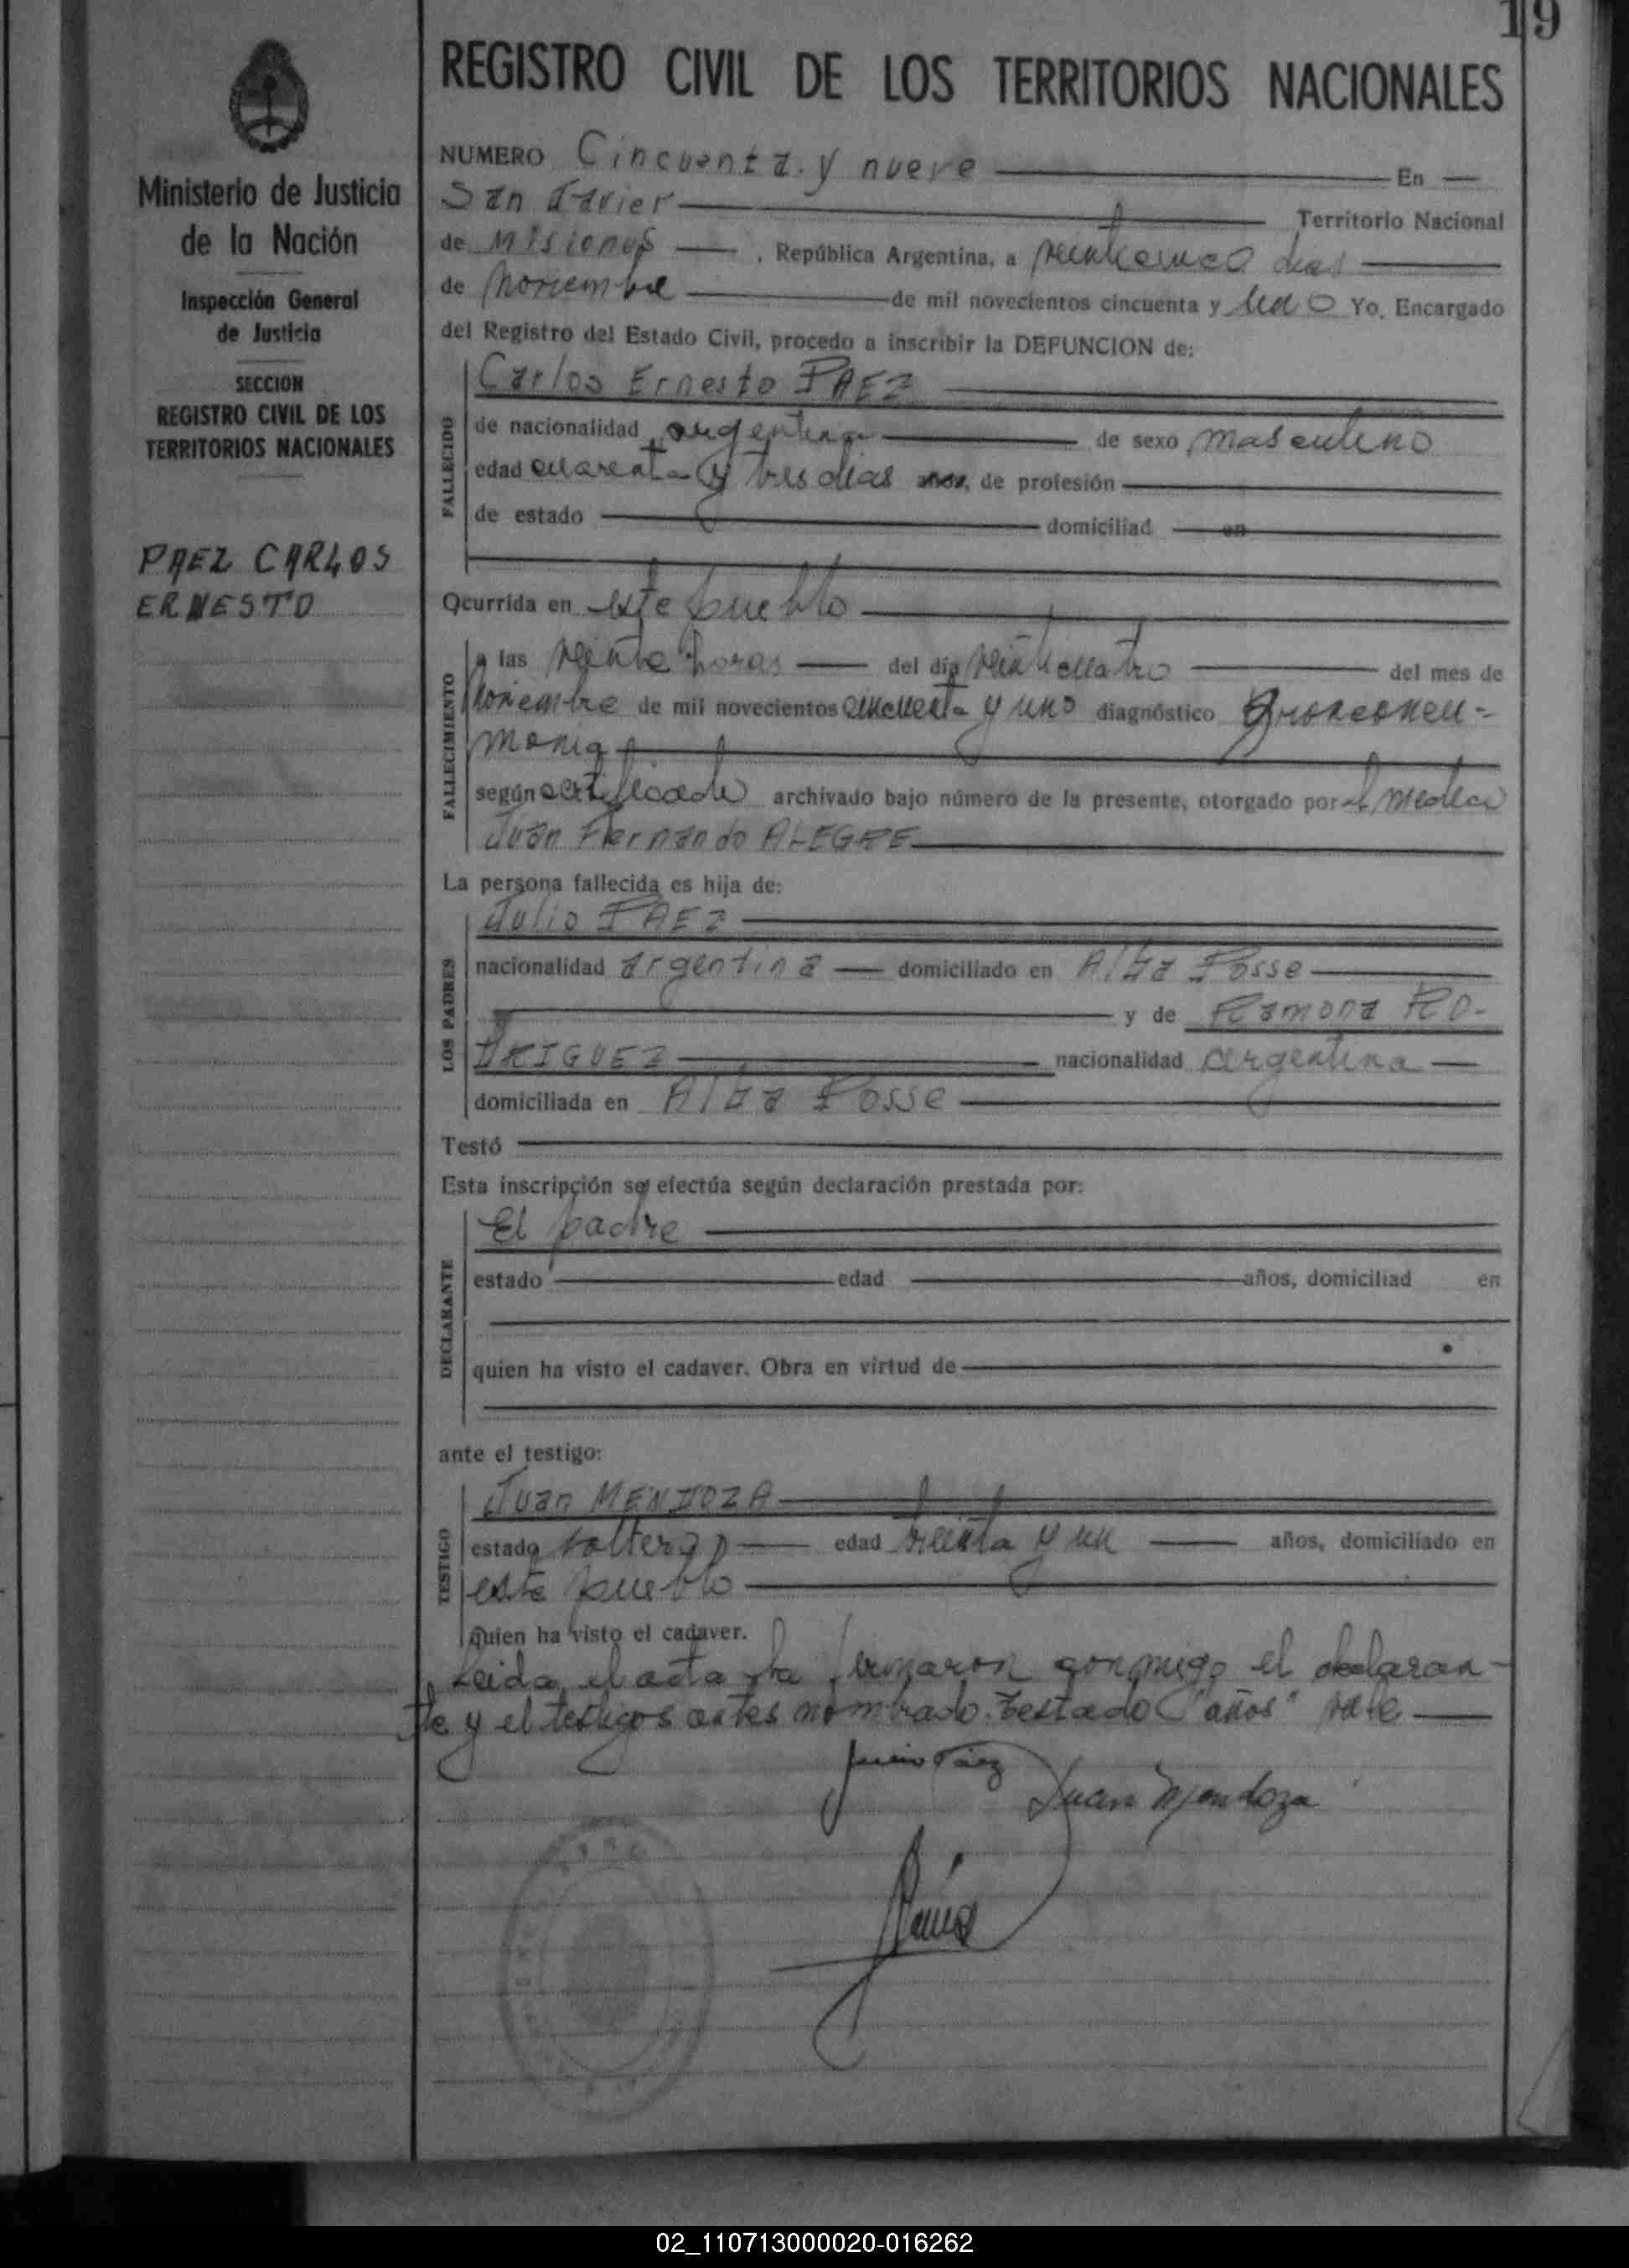 19
REGISTRO CIVIL DE LOS TERRITORIOS NACIONALES
Ministerio de Justicia
de la Nación
Inspección General
de Justicia
SECCION
REGISTRO CIVIL DE LOS
TERRITORIOS NACIONALES
PAEZ CARLOS
ERNESTO
NUMERO Cincuenta y nueve En
San Javier Territorio Nacional
de Misiones, República Argentina, a veinticinco dias
de Noviembre de mil novecientos cincuenta y uno Yo, Encargado
del Registro del Estado Civil, procedo a inscribir la DEFUNCION de:
FALLECIDO
Carlos Ernesto PAEZ
de nacionalidad argentina de sexo masculino
edad cuarenta y tres dias años, de profesión
de estado domiciliad en
Ocurrida en este pueblo
FALLECIMIENTO
a las veinte horas del día veinticuatro del mes de
Noviembre de mil novecientos cincuenta y uno diagnóstico Bronconeu-
monia
según certificado archivado bajo número de la presente, otorgado por el medico
Juan Fernando ALEGRE
La persona fallecida es hija de:
LOS PADRES
Julio PAEZ
nacionalidad argentina domiciliado en Alba Posse
y de Ramona RO-
DRIGUEZ nacionalidad argentina
domiciliada en Alba Posse
Testó
Esta inscripción se efectúa según declaración prestada por:
DECLARANTE
El padre
estado edad años, domiciliad en
quien ha visto el cadaver. Obra en virtud de
ante el testigo:
TESTIGO
Juan MENDOZA
estado soltero edad treinta y un años, domiciliado en
este pueblo
quien ha visto el cadaver.
Leida el acta la firmaron conmigo el declaran-
te y el testigos antes nombrado. Testado "años" vale
Julio Páez
Juan Mendoza
02_110713000020-016262